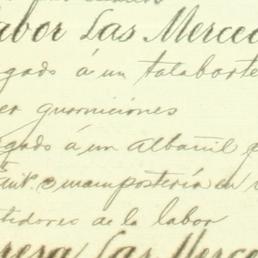 abor Las Merced
gado á un talabarte
er guarniciones
gado á un albañil
mampostería en
tidores de la labor
resa Las Merced